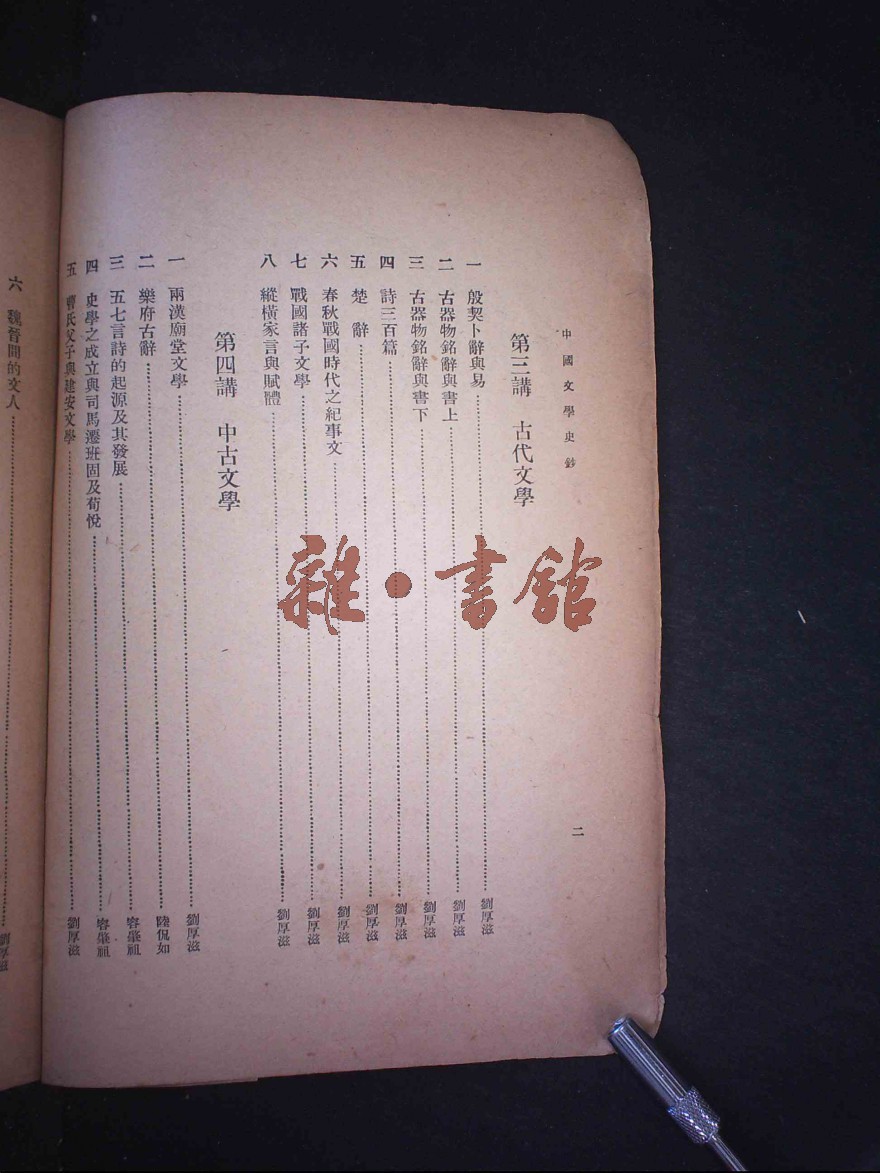 中國文學史鈔
二
第三講　古代文學
一　殷契卜辭與易……劉厚滋
二　古器物銘辭與書上……劉厚滋
三　古器物銘辭與書下……劉厚滋
四　詩三百篇……劉厚滋
五　楚　辭……劉厚滋
六　春秋戰國時代之紀事文……劉厚滋
七　戰國諸子文學……劉厚滋
八　縱橫家言與賦體……劉厚滋
第四講　中古文學
一　兩漢廟堂文學……劉厚滋
二　樂府古辭……陸侃如
三　五七言詩的起源及其發展……容肇祖
四　史學之成立與司馬遷班固及荀悅……容肇祖
五　曹氏父子與建安文學……劉厚滋
六　魏晉間的文人……劉厚滋
雜·書館